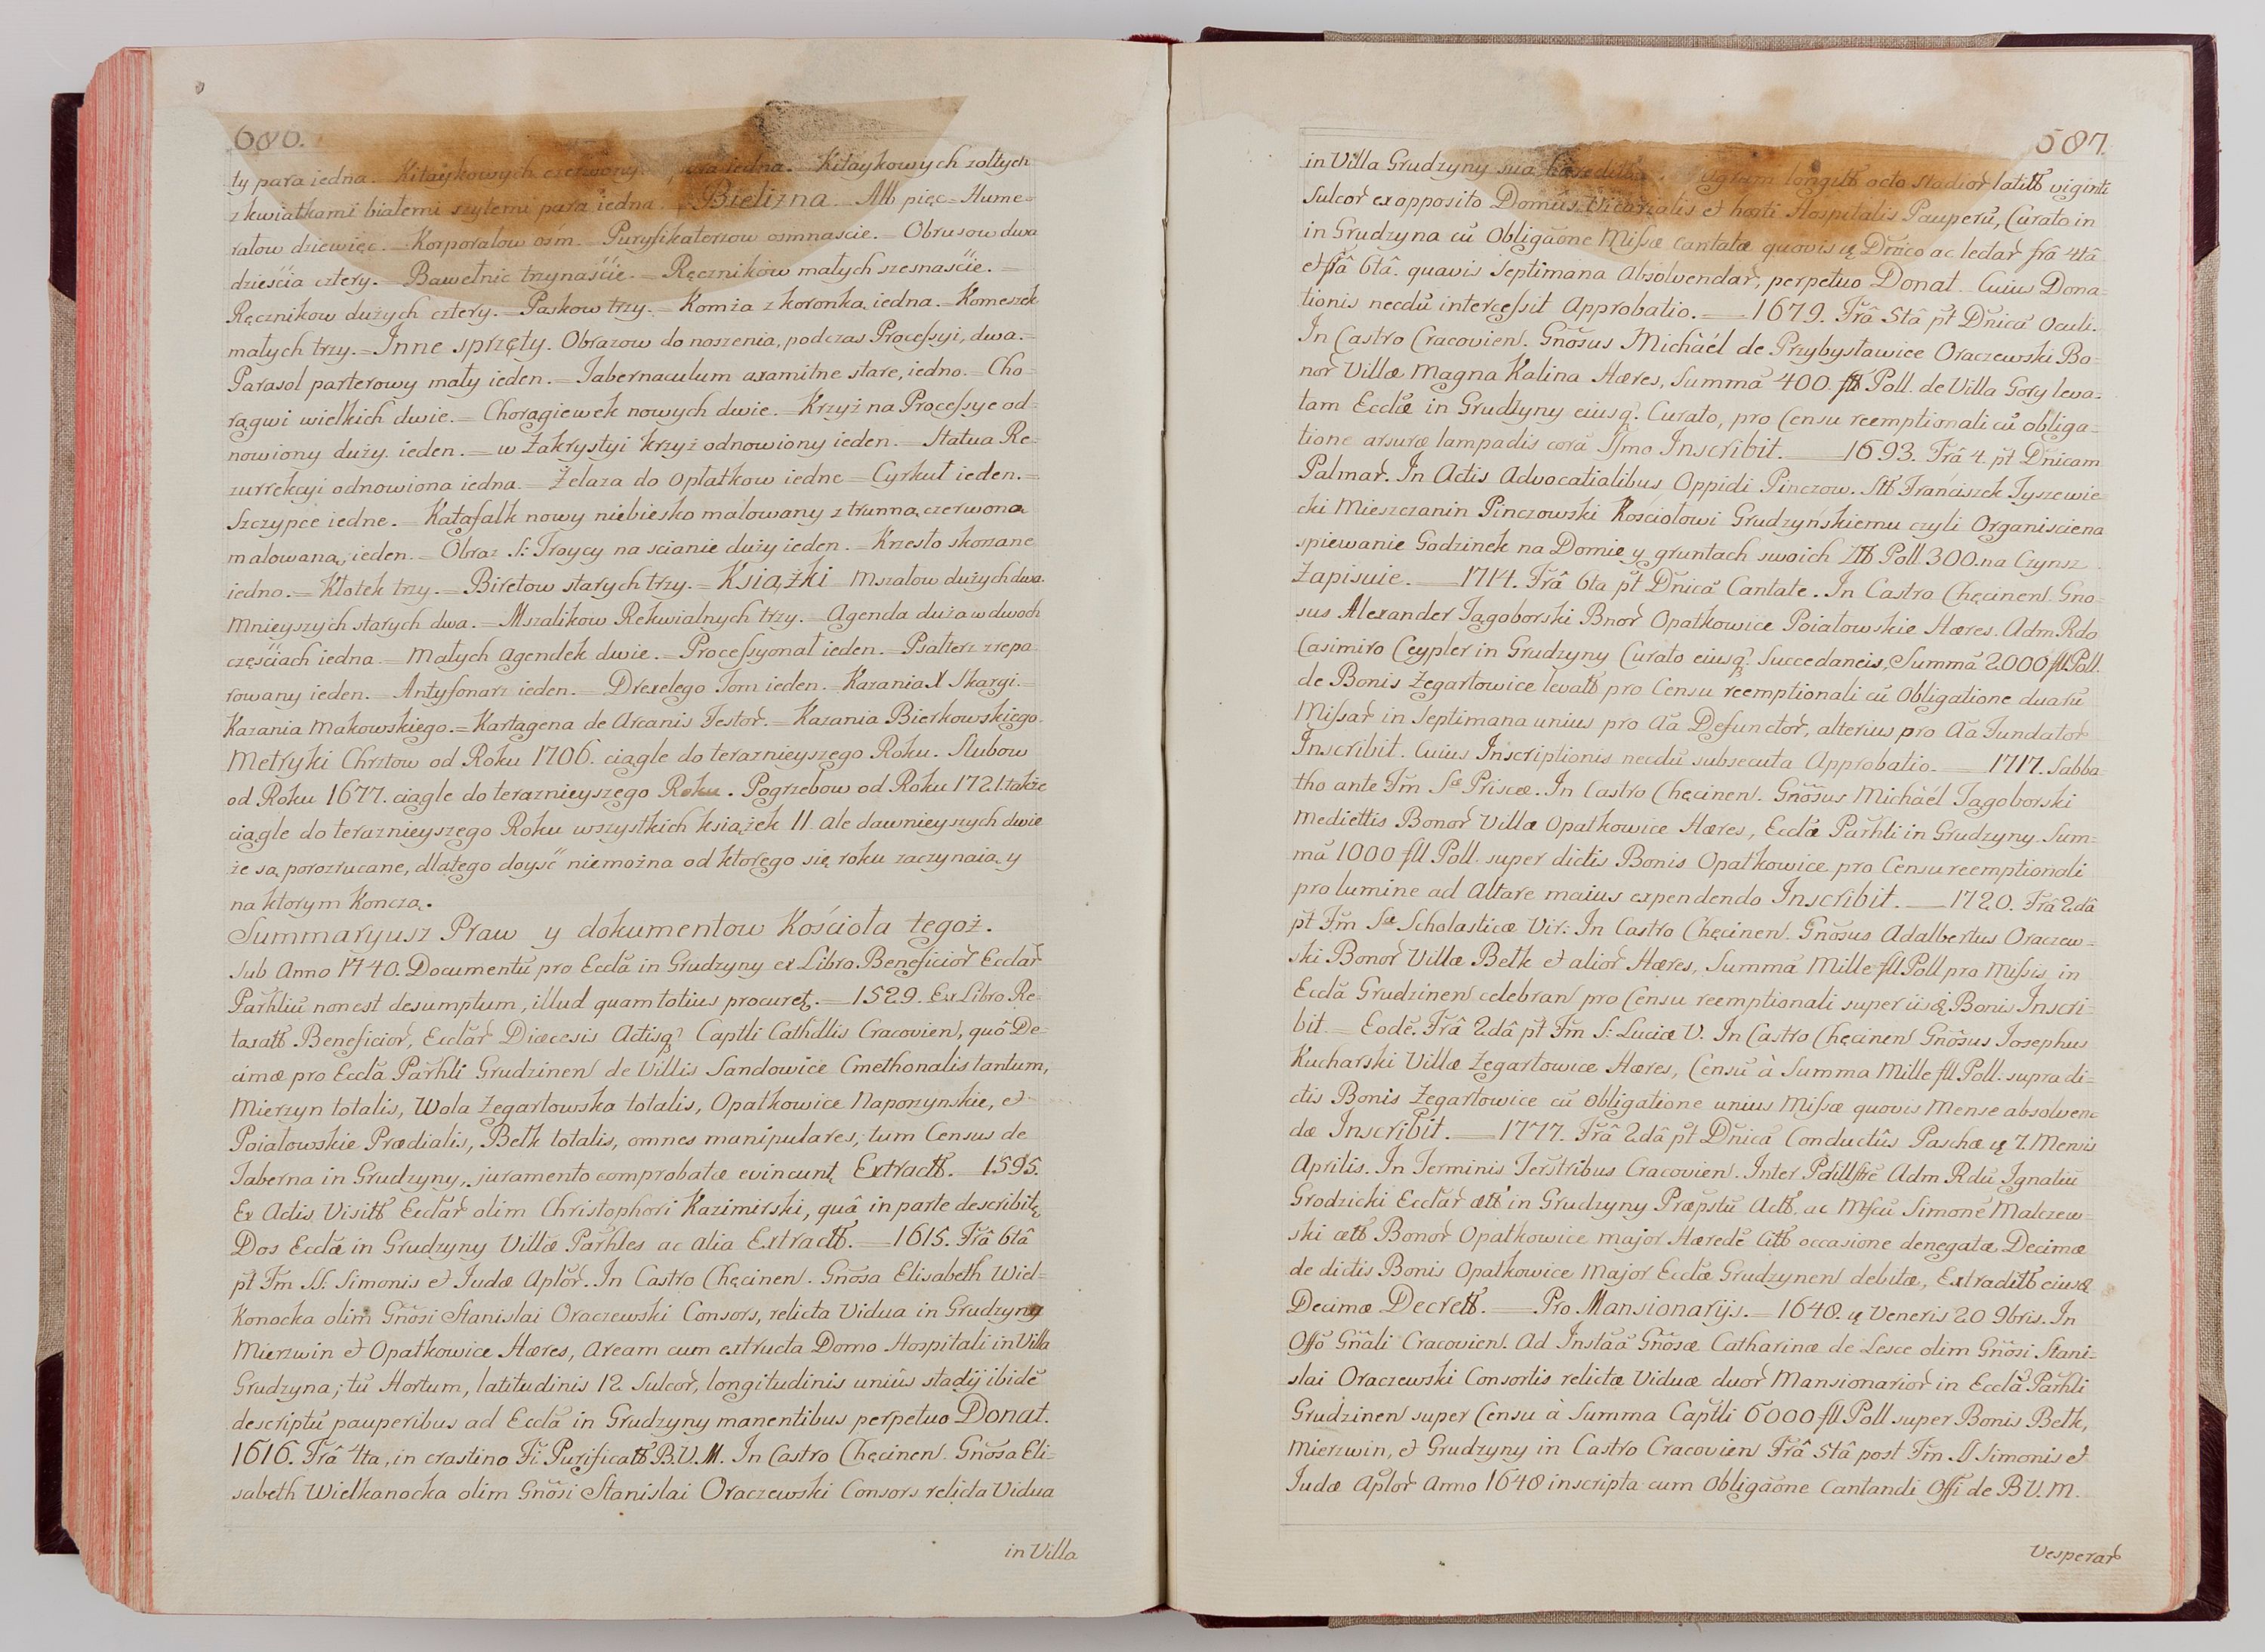 686.
ty para iedna. Kitaykowych czerwony. para iedna. Kitaykowych zołtych
z kwiatkami białemi szytemi para iedna. Bielizna. Alb pięc = Hume=
rałow dziewięc. = Korporałow ośm. Puryfikaterzow osmnascie. = Obrusow dwa
dzieścia cztery. = Bawełnic trzynaście. = Ręczników małych szesnaście. =
Ręcznikow dużych cztery. = Paskow trzy. = Komża z koronką iedna. = Komeszek
małych trzy. = Inne sprzęty. Obrazow do noszenia, podczas Processyi, dwa. =
Parasol parterowy mały ieden. = Tabernaculum axamitne stare, iedno. = Cho=
rągwi wielkich dwie. = Chorągiewek nowych dwie. = Krzyż na Processye od=
nowiony duży ieden. = w Zakrystyi krzyż odnowiony ieden. = Statua Re=
zurrekcyi odnowiona iedna = Żelaza do Opłatkow iedne = Cyrkuł ieden. =
Szczypce iedne. = Katafalk nowy niebiesko malowany z trunną czerwono
malowaną, ieden. = Obraz S: Troycy na scianie duży ieden. = Krzesło skorzane
iedno. = Kłotek trzy. = Biretow starych trzy. = Książki Mszałow dużych dwa.
Mnieyszych starych dwa. = Mszalikow Rekwialnych trzy. = Agenda duża w dwoch
częściach iedna = Małych Agendek dwie. = Processyonał ieden. = Psałterz zrepa=
rowany ieden. = Antyfonarz ieden. = Drexelego Tom ieden. = Kazania X Skargi. =
Kazania Makowskiego. = Kartagena de Arcanis Festor̃. = Kazania Bierkowskiego.
Metryki Chrztow od Roku 1706. ciągle do teraznieyszego Roku. Slubow
od Roku 1677. ciągle do teraznieyszego Roku. Pogrzebow od Roku 1721. także
ciągle do teraznieyszego Roku wszystkich książek 11. ale dawnieyszych dwie
że są porozrucane, dlatego doyść niemożna od ktorego się roku zaczynaią y
na ktorym Konczą.
Summaryusz Praw y dokumentow Kościoła tegoż.
Sub Anno 1740. Documentũ pro Eccľa in Grudzyny ex Libro Beneficior̃ Eccľar̃
Parhliũ non est desumptum, illud quam totius procuret. = 1529. Ex Libro Re=
taxatt Beneficior̃, Eccľar̃ Diœcesis Actisq̃ Captli Cathdlis Cracovien, quô De=
cimæ pro Eccľa Parhli Grudzinen de Villis Sandowice Cmethonalis tantum,
Mierzyn totalis, Wola Żegartowska totalis, Opatkowice Naporzynskie, et
Poiałowskie Prædialis, Belk totalis, omnes manipulares; tum Census de
Taberna in Grudzyny, juramento comprobatæ evincunt Extractt. = 1595.
Ex Actis Visitt Eccľar̃ olim Christophori Kazimirski, quâ in parte describit
Dos Eccľæ in Grudzyny Villæ Parhles ac alia Extractt. = 1615. Fr̃â 6tâ
pt̃ Fm̃ SS: Simonis et Judæ Aptor̃. In Castro Chęcinen. Gñosa Elisabeth Wiel=
Konocka olim Gñosi Stanislai Oraczewski Consors, relicta Vidua in Grudzyny
Mierzwin et Opatkowice Hæres, Aream cum extructa Domo Hospitali in Villa
Grudzyna; tũ Hortum, latitudinis 12 Sulcor̃, longitudinis uniûs stadij ibidẽ
descriptũ pauperibus ad Eccľa in Grudzyny manentibus perpetuo Donat.
1616. Fr̃â 4ta, in crastino Fi: Purificatt B.V.M. In Castro Chęcinen. Gñosa Eli=
sabeth Wielkanocka olim Gñosi Stanislai Oraczewski Consors relicta Vidua
in Villa
687.
in Villa Grudzyny sua longitt octo Stadior̃ latitt viginti
Sulcor̃ ex opposito Domûs Vicarialis et horti Hospitalis Pauperũ, Curato in
in Grudzyna cũ Obligãone Missæ cantatæ quovis Dñico ac lectar̃ fr̃â 4tâ
et fr̃â 6tâ. quavis Septimana Absolvendar̃, perpetuo Donat. Cuius Dona=
tionis necdũ intercessit Approbatio. = 1679. Fr̃â 5tâ pt̃ Dñicã Oculi.
In Castro Cracovien. Gñosus Michàél de Przybysławice Oraczewski Bo=
nor̃ Villæ Magna Kalina Hæres, Summã 400. fll Poll. de Villa Gory leva=
tam Eccľæ in Grudzyny eiusq̃ Curato, pro Censu reemptionali cũ obliga=
tione arsuræ lampadis corã SSmo Inscribit. = 1693. Fr̃â 4. pt̃ Dñicam
Palmar̃. In Actis Advocatialibus Oppidi Pinczow. Stt Franciszek Tyszewie
cki Mieszczanin Pinczowski Kościołowi Grudzyńskiemu czyli Organiscie na
spiewanie Godzinek na Domie y gruntach swoich Ztt Poll. 300. na Czynsz
Zapisuie. = 1714. Fr̃â 6ta pt̃ Dñicã Cantate. In Castro Chęcinen. Gno=
sus Alexander Jagoborski Bnor̃ Opatkowice Poiałowskie Hæres. Adm. Rdo
Casimiro Ceypler in Grudzyny Curato eiusq̃ Succedaneis, Summã 2000 fll. Poll.
de Bonis Żegartowice levatt pro Censu reemptionali cũ Obligatione duarũ
Missar̃ in Septimana unius pro Aã Defunctor̃, alterius pro Aã Fundator̃
Inscribit. Cuius Inscriptionis necdũ subsecuta Approbatio. = 1717. Sabba=
tho ante Fm̃ Sæ Priscæ. In Castro Chęcinen. Gñosus Michàél Jagoborski
Mediettis Bonor̃ Villæ Opatkowice Hæres, Eccľæ Parhli in Grudzyny Sum=
mã 1000 fll. Poll. super dictis Bonis Opatkowice pro Censu reemptionali
pro lumine ad Altare maius expendendo Inscribit. = 1720. Fr̃â 2dâ
pt̃ Fm̃ Sæ Scholasticæ Vir: In Castro Chęcinen. Gñosus Adalbertus Oraczew=
ski Bonor̃ Villæ Belk et alior̃ Hæres, Summã Mille fll. Poll pro Missis in
Eccľa Grudzinen celebran pro Censu reemptionali super iisq̃ Bonis Inscri=
bit. = Eodẽ. Fr̃â 2dâ pt̃ Fm̃ S: Luciæ V. In Castro Chęcinen Gñosus Josephus
Kucharski Villæ Żegartowice Hæres, Censũ à Summa Mille fll. Poll. supra di=
ctis Bonis Żegartowice cũ obligatione unius Missæ quovis Mense absolven=
dæ Inscribit. = 1777. Fr̃â 2dâ pt̃ Dñicã Conductûs Paschæ 7. Mensis
Aprilis. In Terminis Terstribus Cracovien. Inter Adm Rdũ Ignatiũ
Grodzicki Eccľar̃ in Grudzyny Præpstũ Actt, ac Simonẽ Malczew=
ski Bonor̃ Opatkowice major Hæredẽ Citt occasione denegatæ Decimæ
de dictis Bonis Opatkowice Major Eccľæ Grudzynen debitæ, Extraditt
Decimæ Decrett. = Pro Mansionarijs. = 1648. Veneris 20 9bris. In
Offõ Gñali Cracovien. Ad Instãã Gñosæ Catharinæ de Lesce olim Gñosi Stani=
slai Oraczewski Consortis relictæ Viduæ duor̃ Mansionarior̃ in Eccľa Parhli
Grudzinen super Censu à Summa Captli 6000 fll. Poll super Bonis Belk,
Mierzwin, et Grudzyny in Castro Cracovien Fr̃â 5tâ post Fm̃ SS Simonis et
Judæ Aptor̃ Anno 1648 inscripta cum Obligãone Cantandi Offi de B V. M.
Vesperar̃